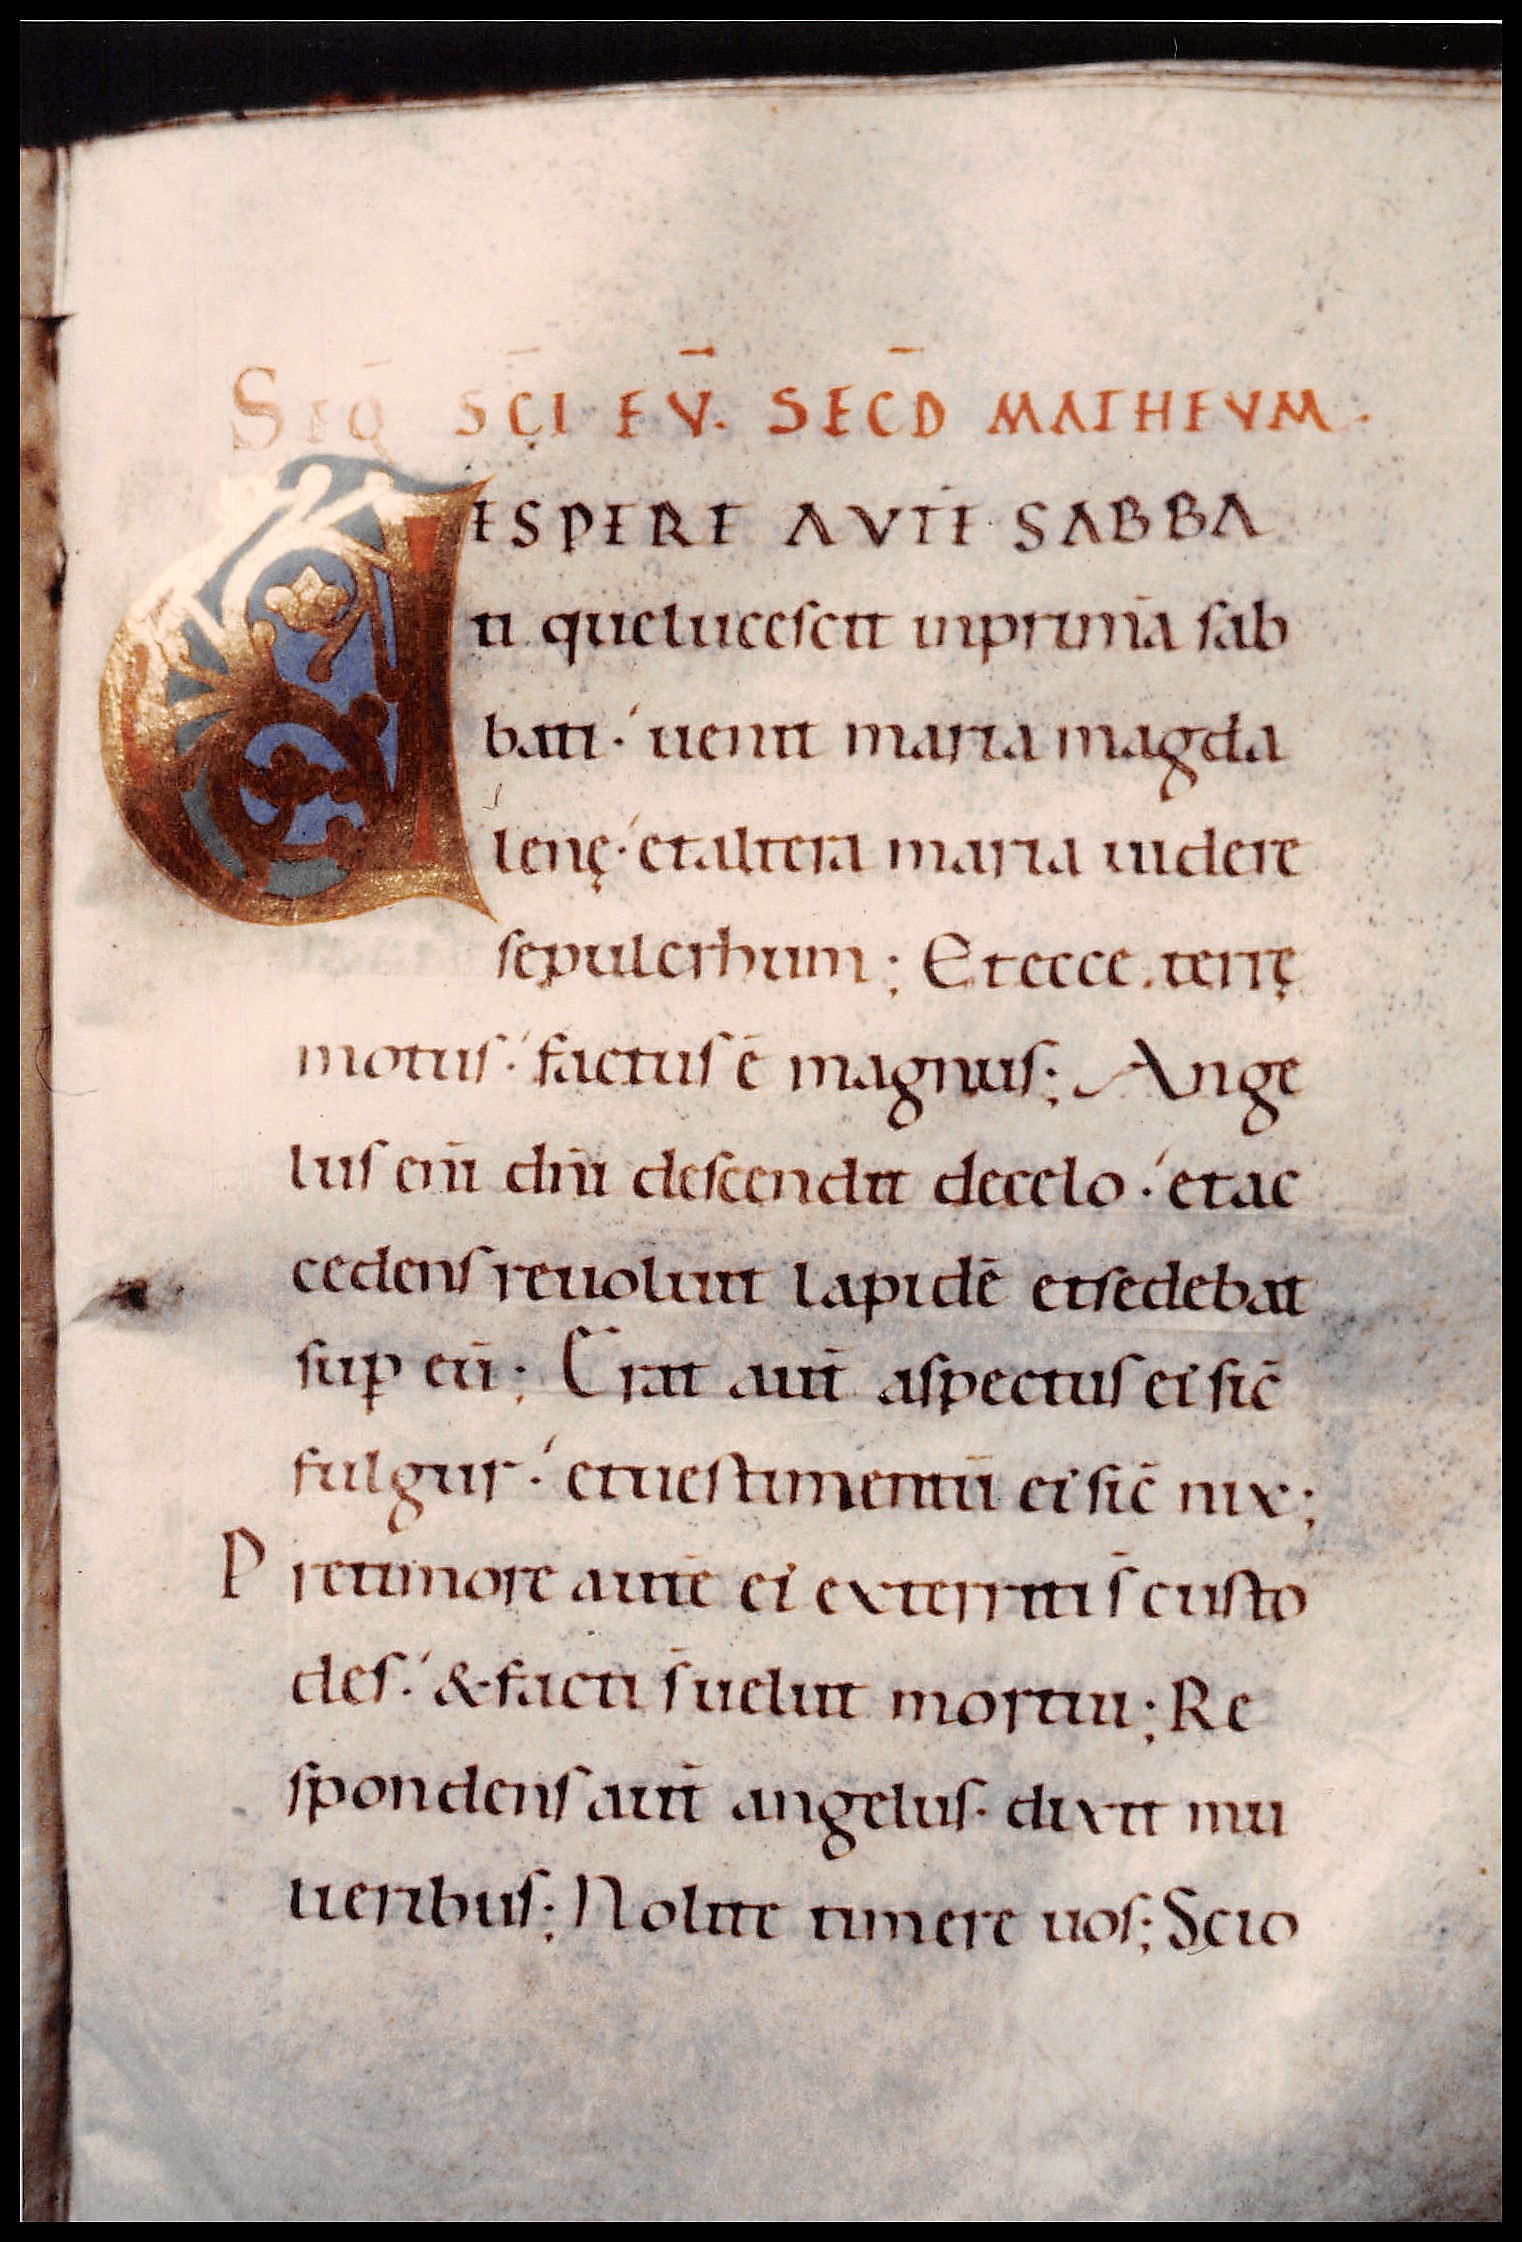 SEQ̄ SC̄I EV̄. SEC̄D MATHEVM.
VESPERE AVTĒ SABBA
ti quelucescit inprimā sab
bati. uenit maria magda
lenę. etaltera maria uidere
sepulcrhum; Etecce. terrę
motus. factus ē magnus; Ange
lus eni̅ dn̅i descendit decelo. etac
cedens reuoluit lapidē etsedebat
suꝑ eū; Erat aut̅ aspectus ei' sic̅
fulgur. etuestimentū ei' sic̅ nix;
Pretimore autē ei' exterriti s̅ custo
des. & facti s̅ uelut mortui; Re
spondens aut̅ angelus. dixit mu
lieribus; Nolite timere uos; Scio